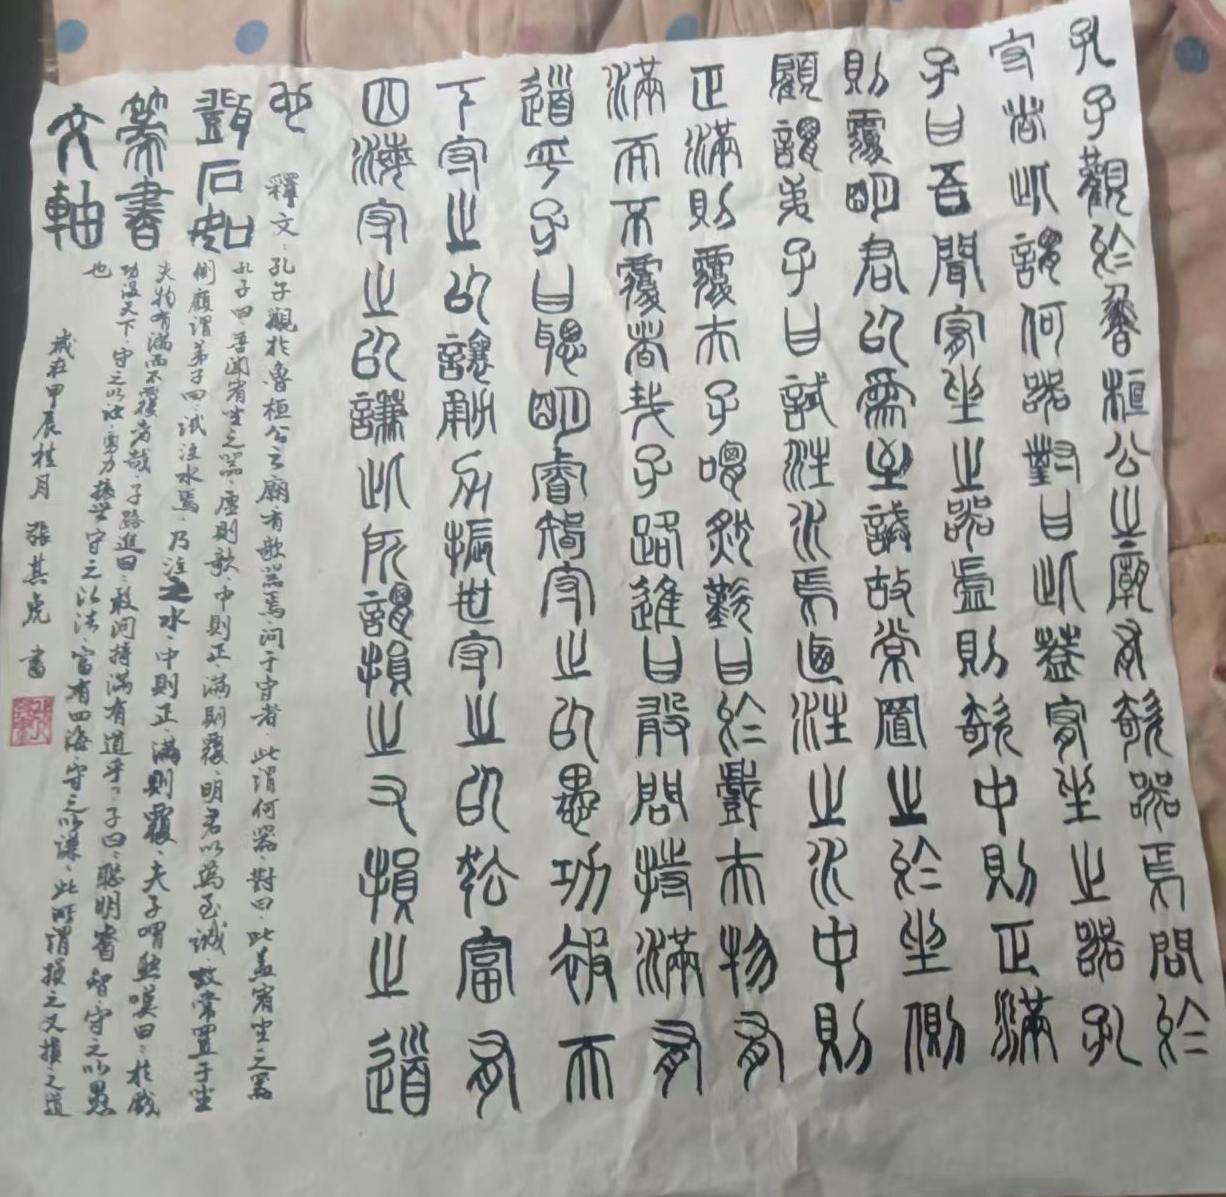 孔子觀於魯桓公之廟有欹器焉問於
守者此謂何器對曰此蓋宥坐之器孔
子曰吾聞宥坐之器虛則欹中則正滿
則覆明君以為至誡故常置之於坐側
顧謂弟子曰試注水焉迺注之水中則
正滿則覆夫子喟然歎曰於戲夫物有
滿而不覆者哉子路進曰敢問持滿有
道乎子曰聰明睿智守之以愚功被天
下守之以讓勇力振世守之以怯富有
四海守之以謙此所謂損之又損之道
也
釋文：孔子觀於魯桓公之廟有欹器焉，問于守者，此謂何器，對曰，此蓋宥坐之器
鄧石如
孔子曰，吾聞宥坐之器，虛則欹，中則正滿則覆，明君以為至誡，故常置于坐
側顧謂弟子曰，試注水焉，乃注之水，中則正，滿則覆，夫子喟然嘆曰：於戲
篆書
夫物有滿而不覆者哉，子路進曰：敢問持滿有道乎？子曰：聰明睿智，守之以愚
功天下，守之以，勇力振世，守之以怯，富有四海，守之以謙，此所謂損之又損之道
文軸
也
歲在甲辰桂月 張其虎 書